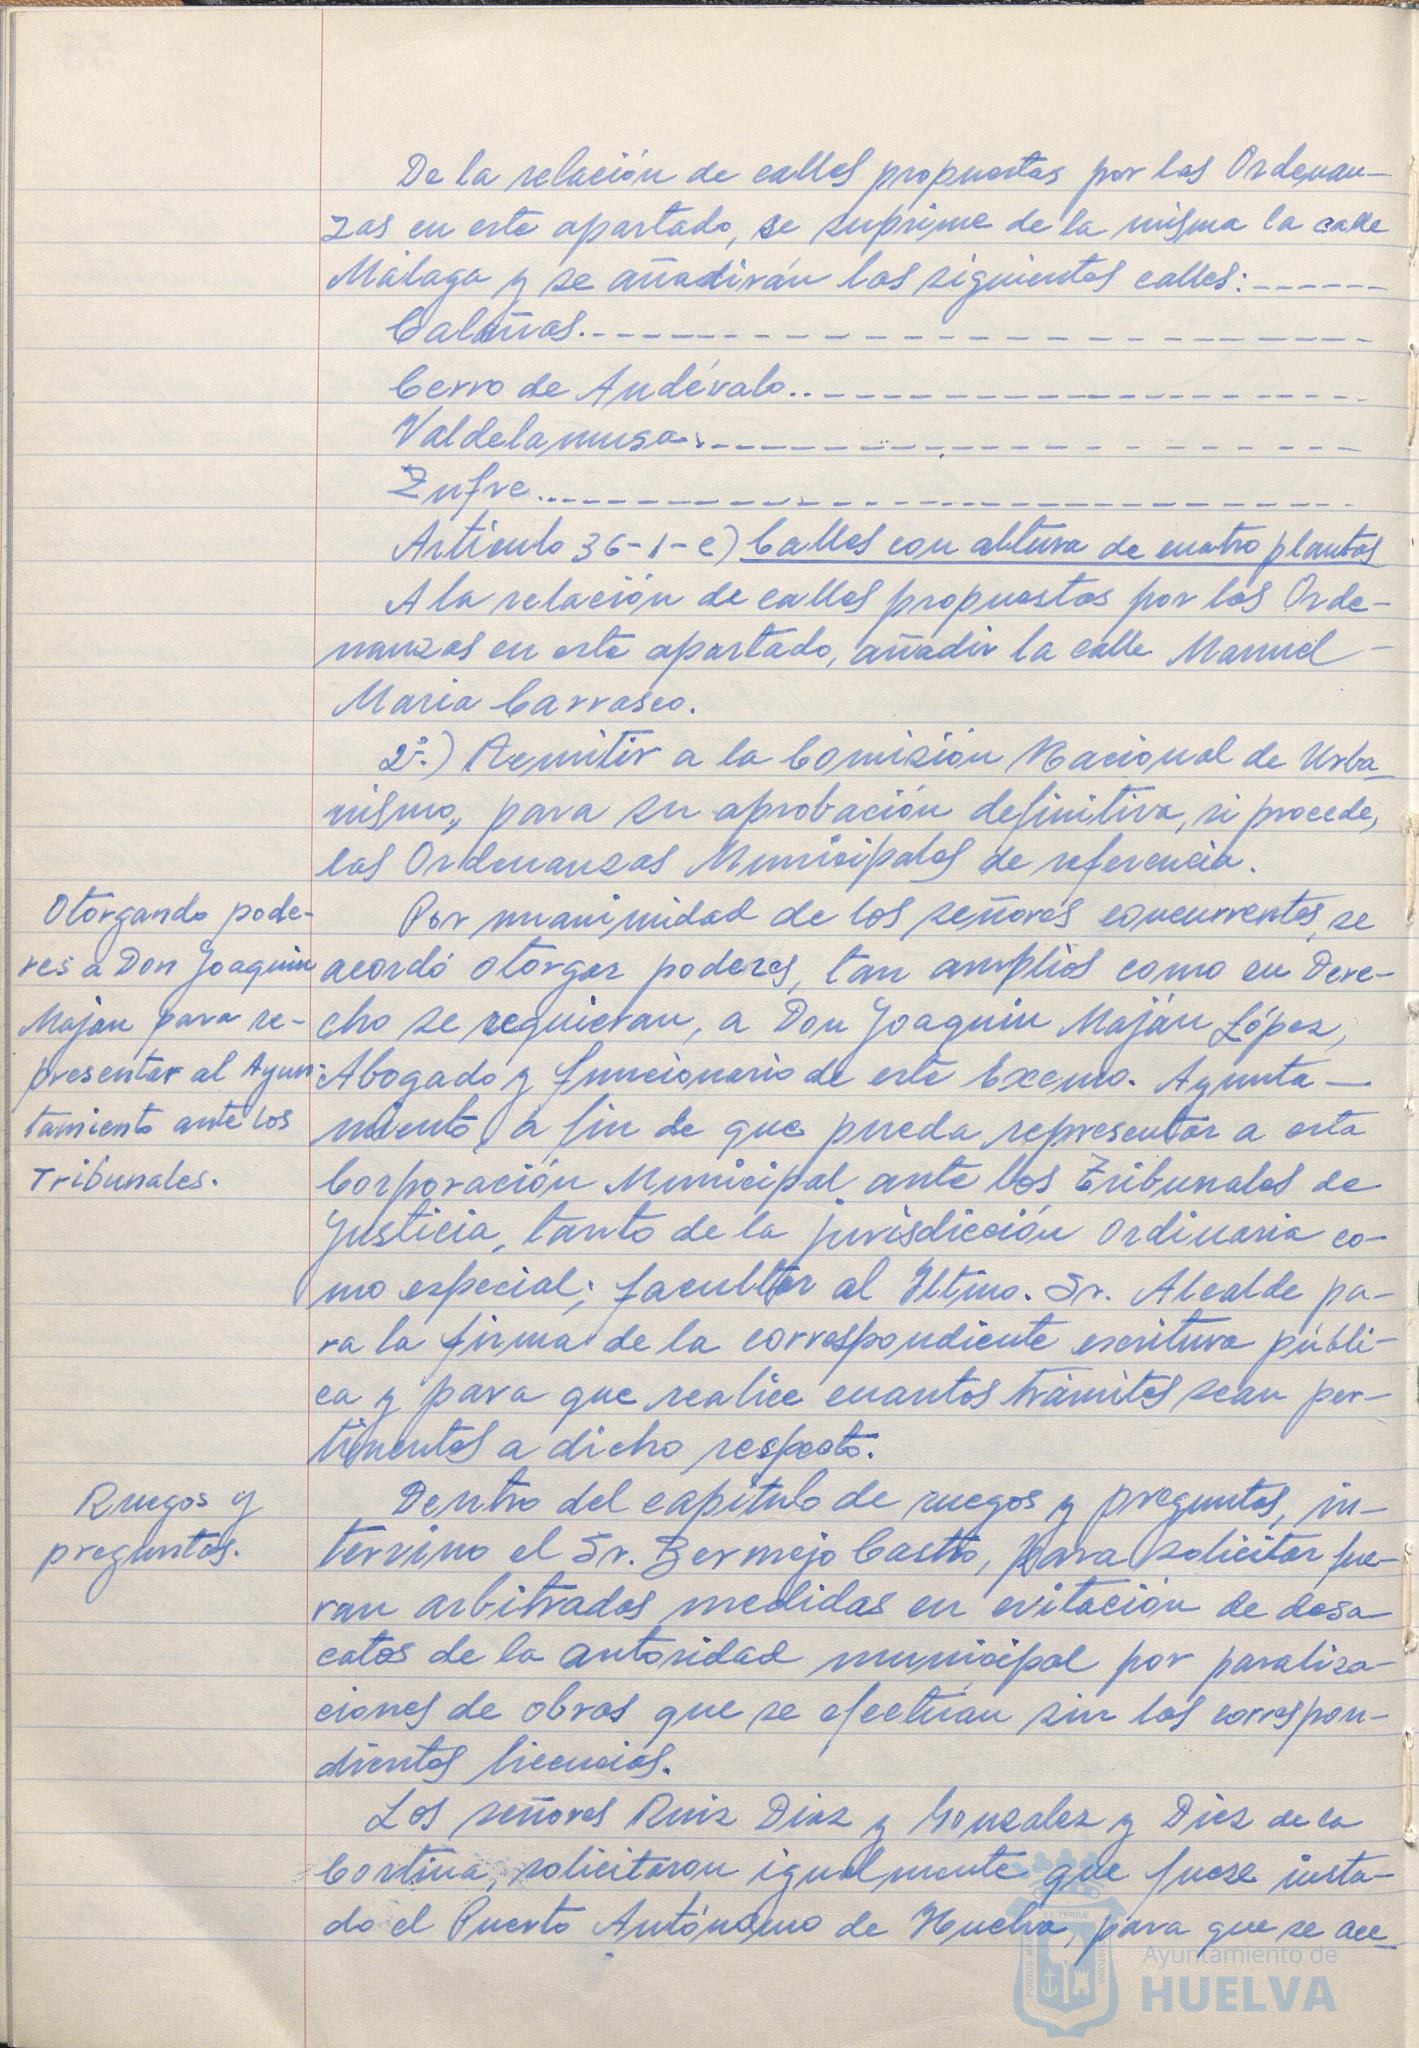 De la relación de calles propuestas por las Ordenan-
zas en este apartado, se suprime de la misma la calle
Málaga y se añadirán las siguientes calles:------
Calañas.------------------
Cerro de Andévalo..-----------------
Valdelamusa.---------------
Zufre...-----------------
Articulo 36-1-e) Calles con altura de cuatro plantas
A la relación de calles propuestas por las Orde-
nanzas en este apartado, añadir la calle Manuel -
Maria Carrasco.
2º.) Remitir a la Comisión Nacional de Urba-
nismo, para su aprobación definitiva, si procede,
las Ordenanzas Municipales de referencia.
Otorgando pode-
res a Don Joaquin
Maján para re-
presentar al Ayun-
tamiento ante los
Tribunales.
Por unanimidad de los señores concurrentes, se
acordó otorgar poderes, tan amplios como en Dere-
cho se requieran, a Don Joaquin Maján López,
Abogado y funcionario de este Excmo. Ayunta-
miento, a fin de que pueda representar a esta
Corporación Municipal ante los Tribunales de
Justicia, tanto de la jurisdicción Ordinaria co-
mo especial; facultar al Iltmo. Sr. Alcalde pa-
ra la firma de la correspondiente escritura públi-
ca y para que realice cuantos trámites sean per-
tinentes a dicho respecto.
Ruegos y
preguntas.
Dentro del capitulo de ruegos y preguntas, in-
tervino el Sr. Bermejo Castro, para solicitar fue-
ran arbitradas medidas en evitación de desa-
catos de la autoridad municipal por paraliza-
ciones de obras que se efectúan sin las correspon-
dientes licencias.
Los señores Ruiz Diaz y Gonzalez y Diez de la
Cortina, solicitaron igualmente que fuese insta-
do el Puerto Autónomo de Huelva, para que se ace-
Ayuntamiento de
HUELVA